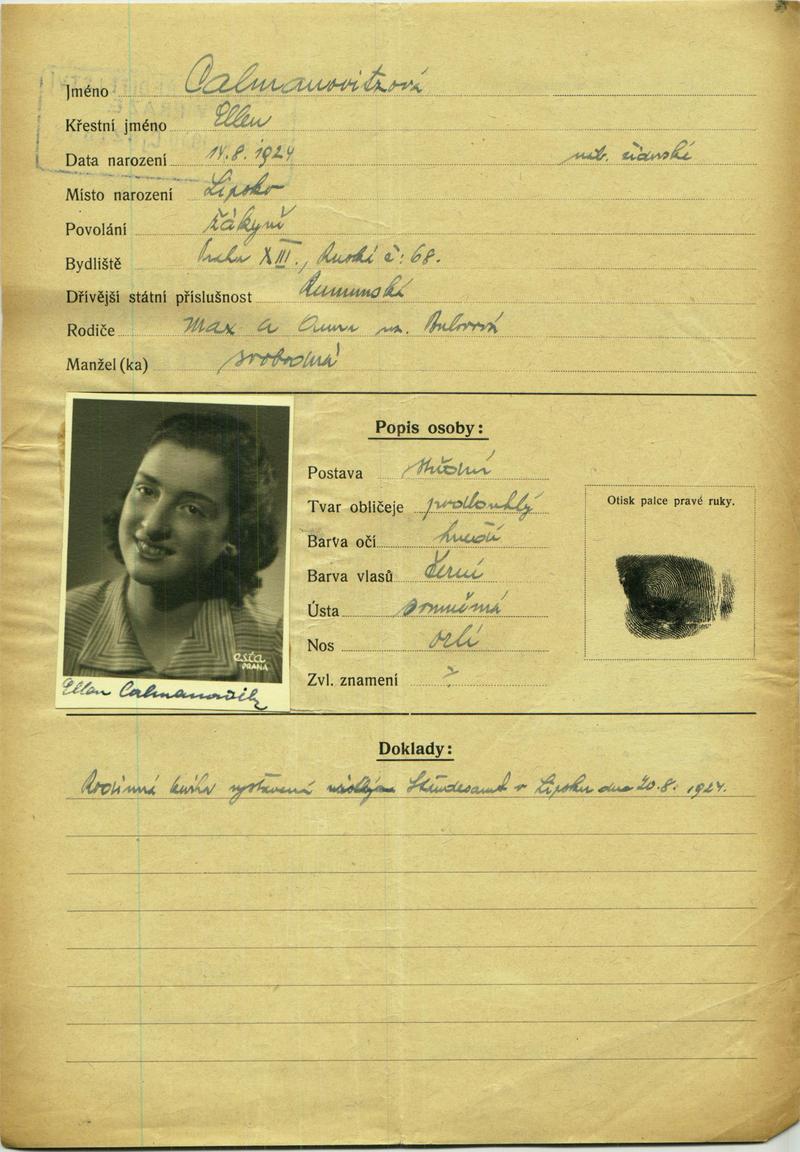 Jméno Calmanovitzová
Křestní jméno Ellen
Data narození 14.8.1924 náb. židovské
Místo narození Lipsko
Povolání žákyně
Bydliště Praha XIII., Ruská č: 68.
Dřívější státní příslušnost Rumunská
Rodiče Max a Anna
Manžel (ka) svobodná
Popis osoby:
Postava střední
Tvar obličeje podlouhlý
Barva očí hnědá
Barva vlasů černá
Ústa souměrná
Nos orlí
Zvl. znamení
Otisk palce pravé ruky.
PRAHA
Ellen Calmanovitz
Doklady:
Rodinná kniha vystavená Standesamt v Lipsku dne 20.8.1924.